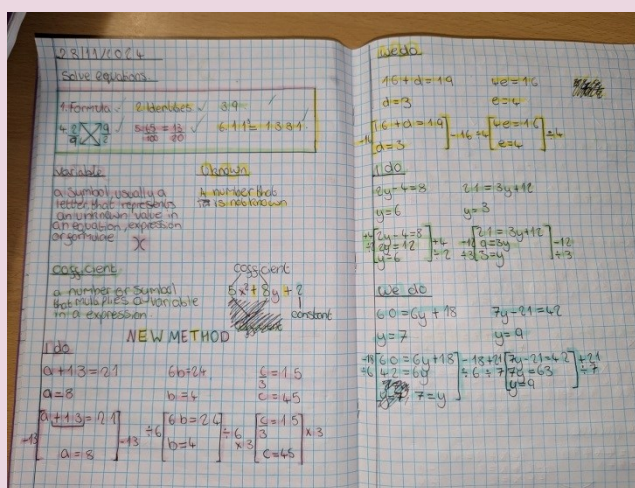 28/11/2024
Solve equations
1. formula ✓ 2 Identities ✓ 3.9 ✓
5. 45/100 = 13/20 6. 11² = 1331
variable
a symbol, usually a
letter, that represents
an unknown value in
an equation, expression
or formulae
x
Uknown
A number that
is not known
cofficient
a number or symbol
that multiplies a variable
in a expression
cofficient
5x² + 8y + 2
constant
NEW METHOD
I do
a+13=21 6b=24 c/3=15
a=8 b=4 c=45
-13 [a+13=21] -13 ÷6 [6b=24] ÷6 ×3 [c/3=15] ×3
a=8 b=4 c=45
we do
16+d=19 4e=16
d=3 e=4
-16 [16+d=19] -16 ÷4 [4e=16] ÷4
d=3 e=4
I do
2y-4=8 21=3y+12
y=6 y=3
+4 [2y-4=8] +4 -12 [21=3y+12] -12
÷2 2y=12 ÷2 ÷3 9=3y ÷3
y=6 3=y
we do
60=6y+18 7y-21=42
y=7 y=9
-18 [60=6y+18] -18 +21 [7y-21=42] +21
÷6 42=6y ÷6 ÷7 7y=63 ÷7
7=y y=9